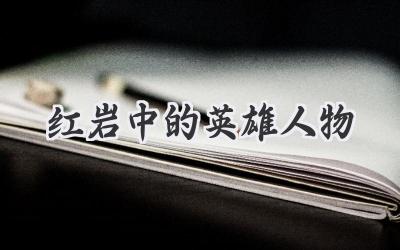 红岩中的英雄人物